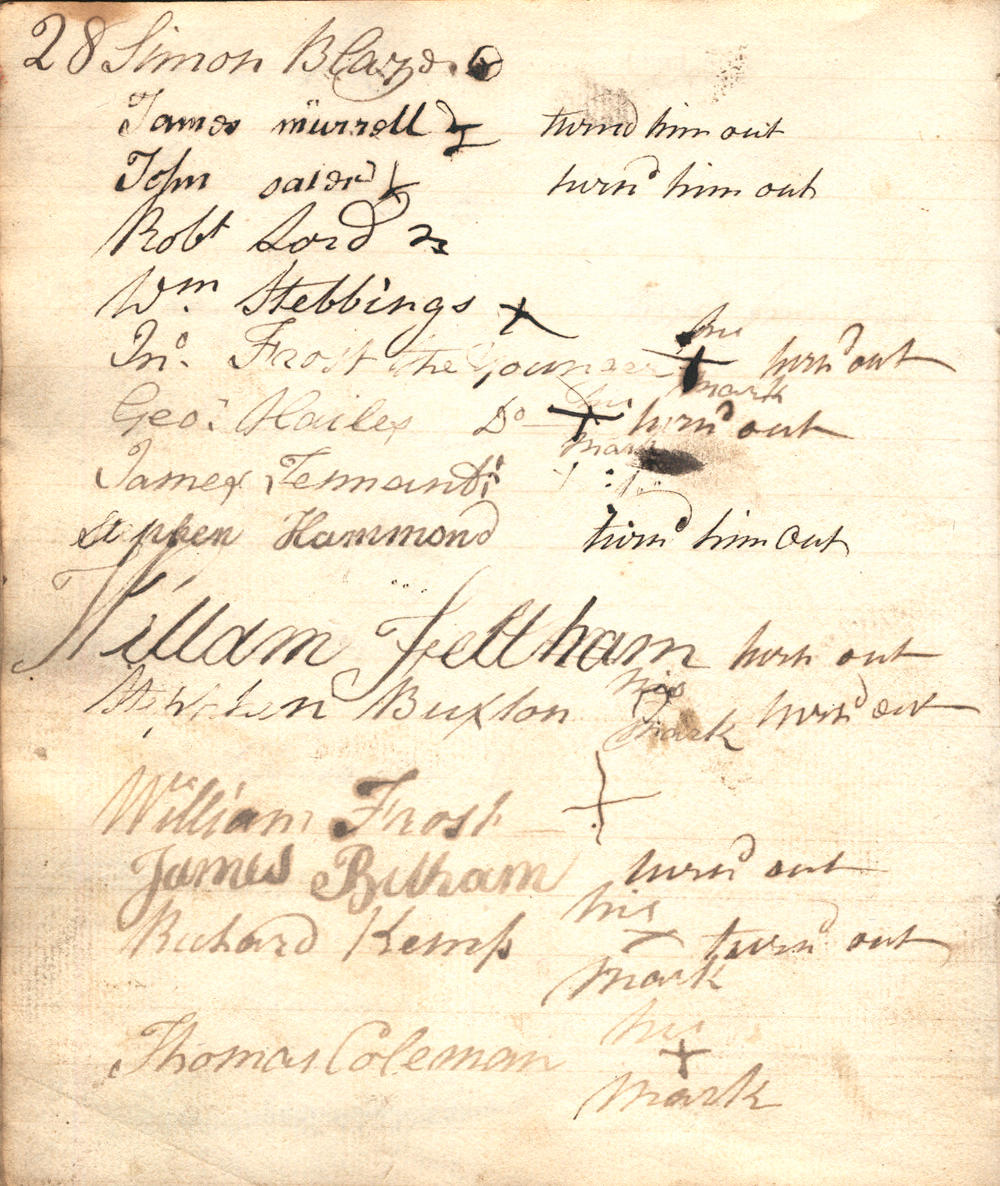 28 Simon Blazd
James murrell turnd him out
John saier turnd him out
Robt Lord
Wm. Stebbings
Jno. Frost the Younger his mark turnd out
Geo. Hailes Do his mark turnd out
James Tennant
Stephen Hammond turnd him out
William Felltham turn out
Stephen Buxton his mark turnd out
William Frost
James Beltham turnd out
Richard Kemp his mark turnd out
Thomas Coleman his mark